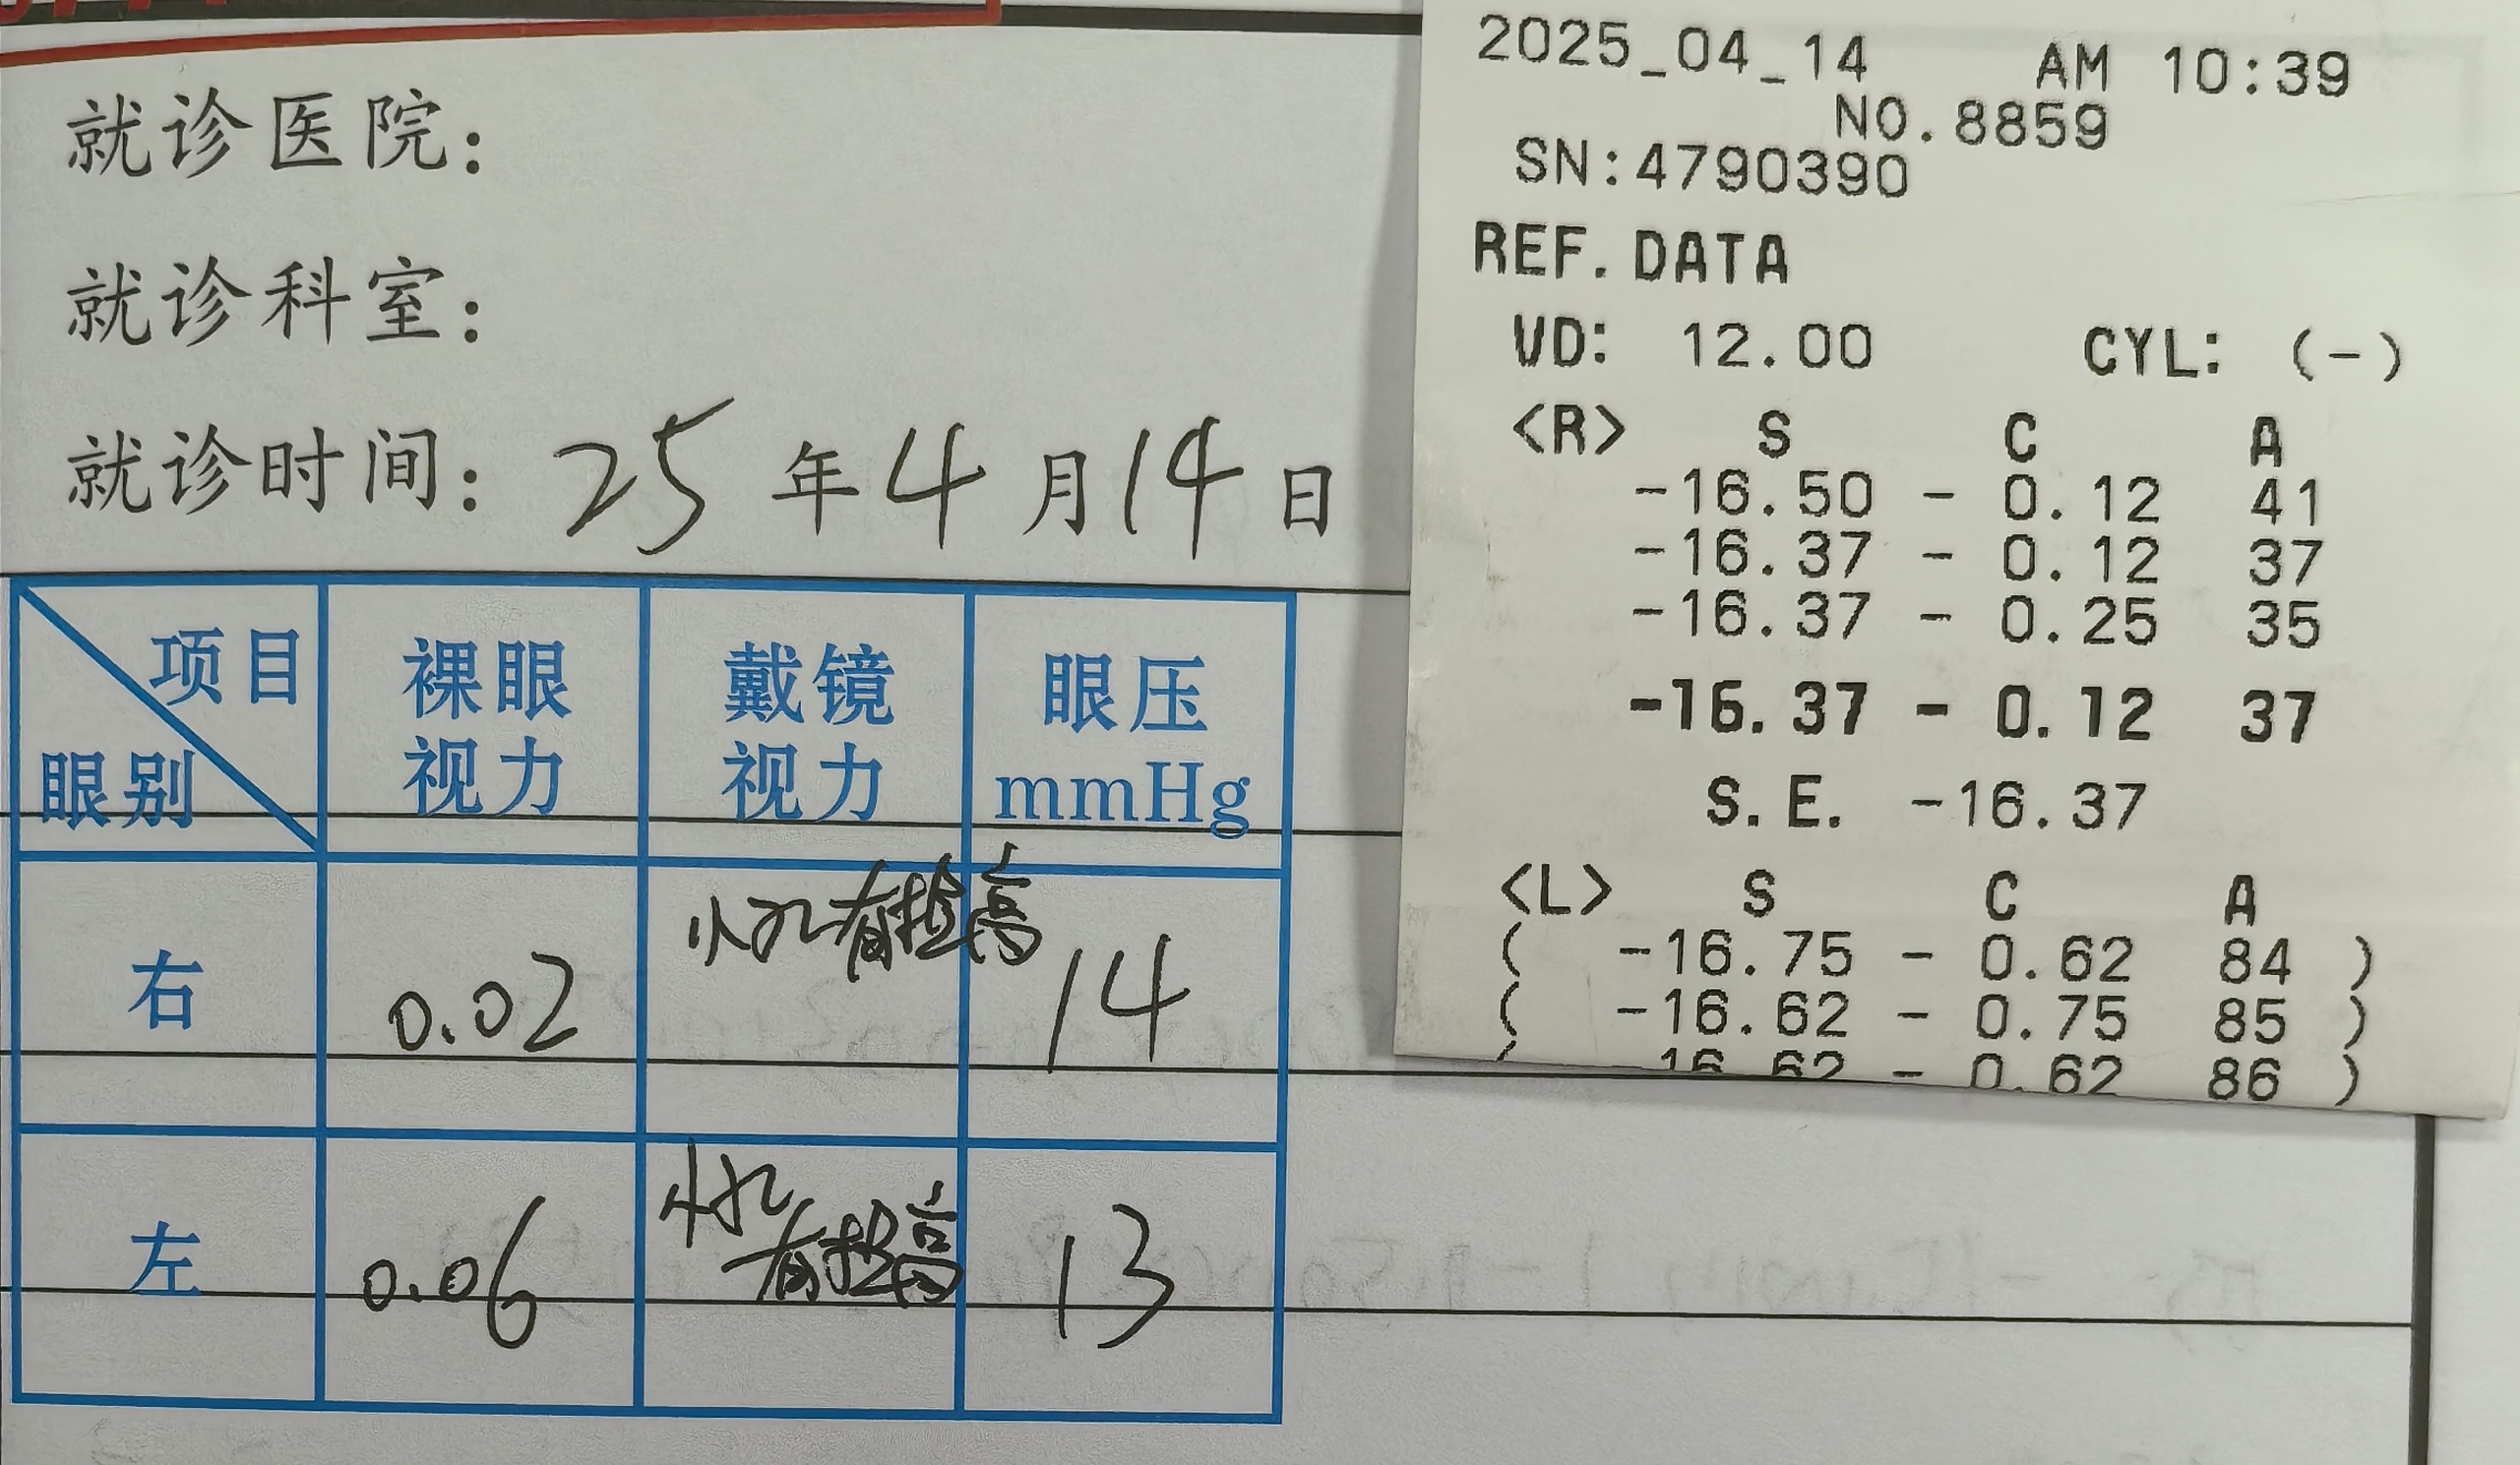 就诊医院:
就诊科室:
就诊时间: 25 年 4 月 14 日
项目 裸眼视力 戴镜视力 眼压 mmHg
眼别
右 0.02 小孔有提高 14
左 0.06 小孔有提高 13
2025_04_14 AM 10:39
NO.8859
SN:4790390
REF.DATA
VD: 12.00 CYL: (-)
<R> S C A
-16.50 - 0.12 41
-16.37 - 0.12 37
-16.37 - 0.25 35
-16.37 - 0.12 37
S.E. -16.37
<L> S C A
( -16.75 - 0.62 84 )
( -16.62 - 0.75 85 )
( -16.62 - 0.62 86 )